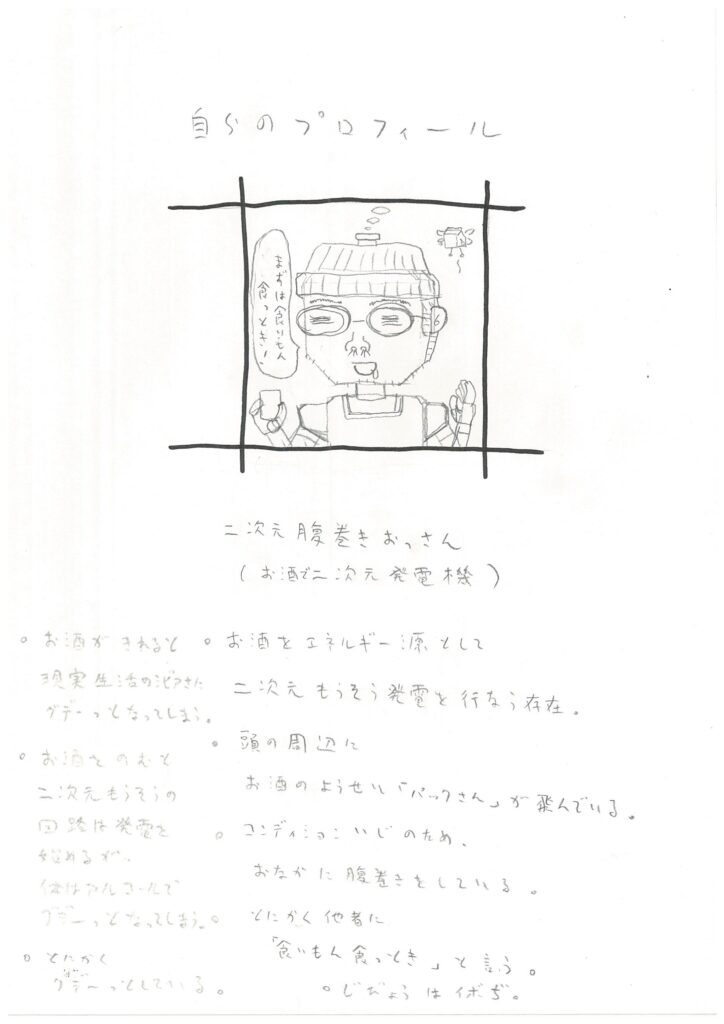 自らのプロフィール
まずは食いもん
食っとき！
二次元腹巻きおっさん
(お酒で二次元発電機)
○ お酒がきれると
現実生活のシビアさに
グデーっとなってしまう。
○ お酒をのむと
二次元もうそうの
回路は発電を
始めるが、
体はアルコールで
グデーっとなってしまう。
○ とにかく
グデーっとしている。
○ お酒をエネルギー源として
二次元もうそう発電を行なう存在。
○ 頭の周辺に
お酒のようせい「パックさん」が飛んでいる。
○ コンディションいじのため、
おなかに腹巻きをしている。
○ とにかく他者に
「食いもん食っとき」と言う。
○ じびょうはイボぢ。